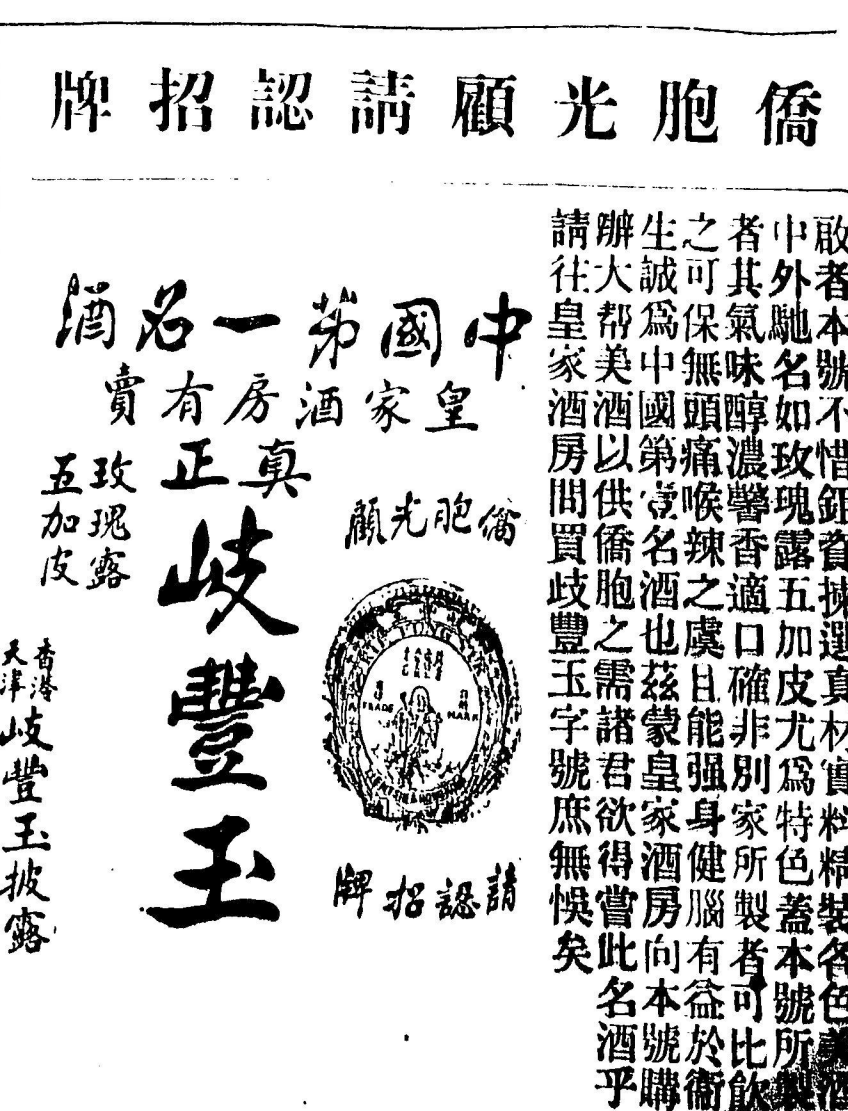 僑胞光顧請認招牌
啟者本號不惜鉅資揀選真材實料精裝各色美酒
中外馳名如玫瑰露五加皮尤爲特色蓋本號所製
者其氣味醇濃馨香適口確非別家所製者可比飲
之可保無頭痛喉辣之虞且能强身健腦有益於衞
生誠爲中國第壹名酒也茲蒙皇家酒房向本號購
辦大帮美酒以供僑胞之需諸君欲得嘗此名酒乎
請往皇家酒房問買歧豐玉字號庶無悞矣
中國第一名酒
皇家酒房有賣
僑胞光顧
TRADE MARK
請認招牌
真正
岐豐玉
玫瑰露
五加皮
香港
天津
岐豐玉披露